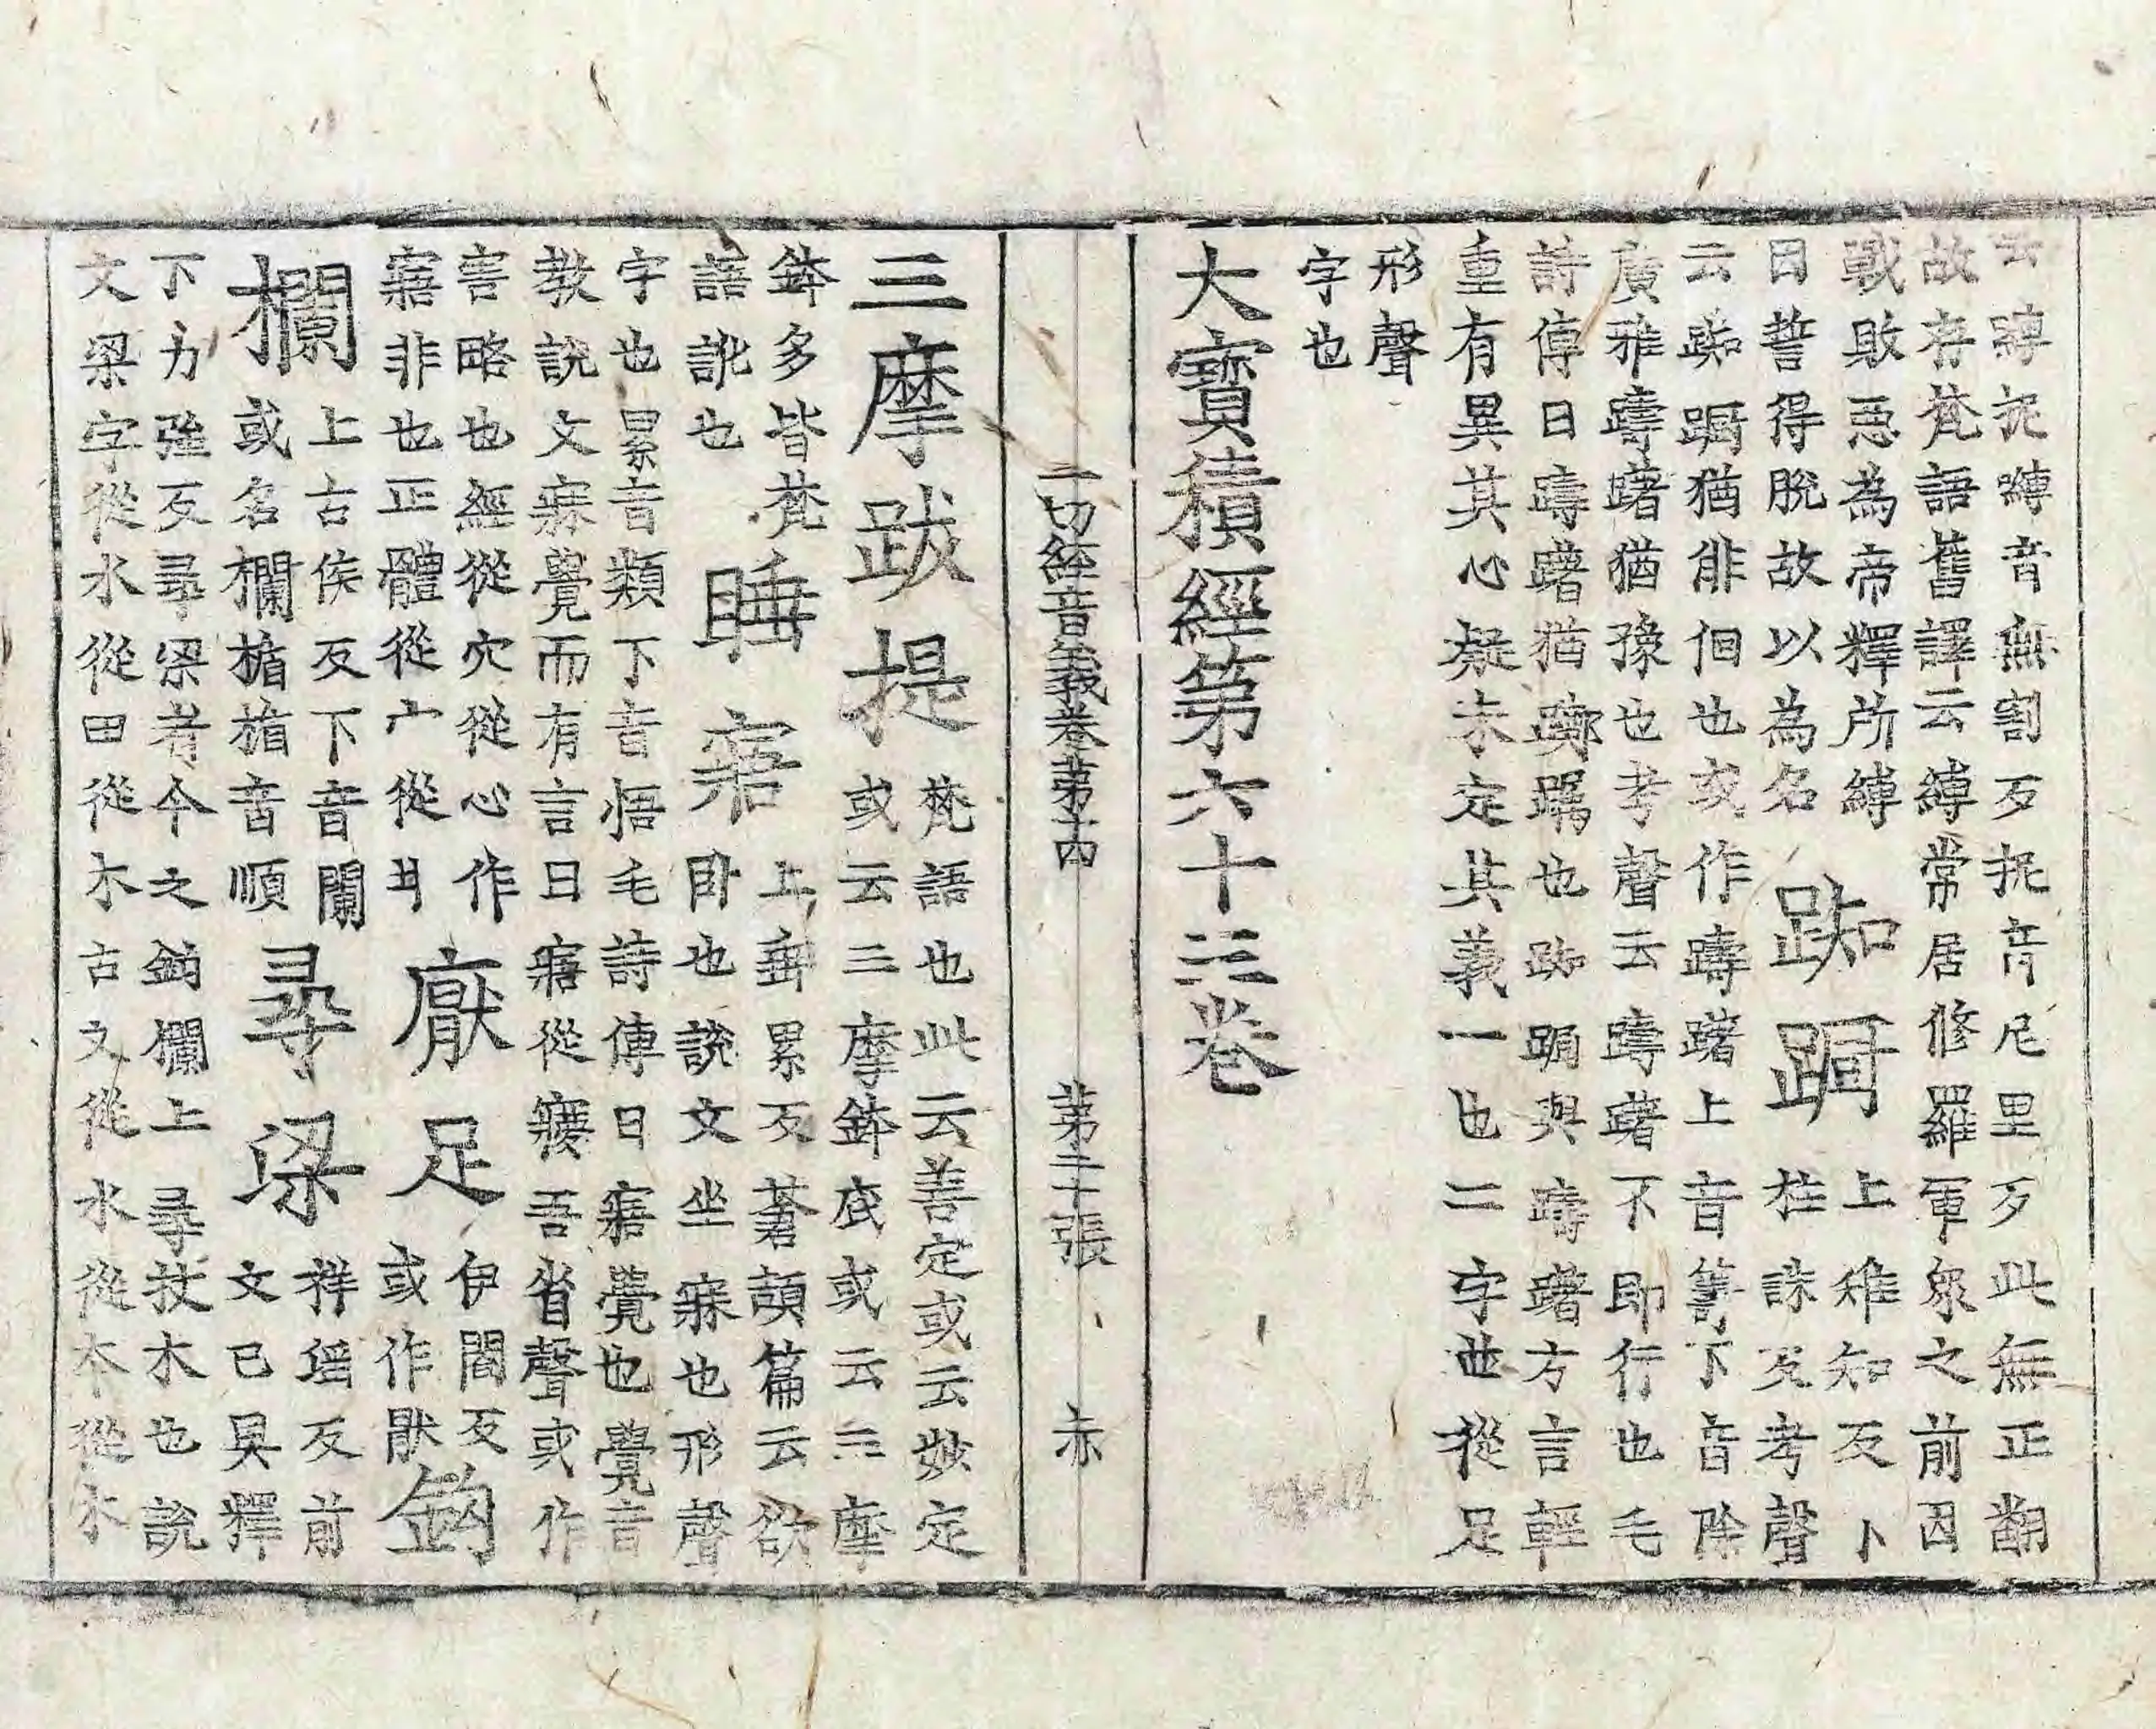 云嚩抳嚩音無割歹抳音尼里歹此無正翻
故存梵語舊譯云縛常居修羅軍衆之前因
戰敗惡為帝釋所縛
日誓得脫故以為名
踟𨃞
上雉知反卜
拄誅反考聲
云踟𨃞猶俳佪也或作躊躇上音籌下音除
廣雅躊躇猶豫也考聲云躊躇不即行也毛
詩傳曰躊躇猶躑躅也踟𨃞與躊躇方言輕
重有異其心疑未定其義一也二字並從足
形聲
字也
大寶積經第六十三卷
一切經音義卷第十四 第二十張 赤
三摩跋提
梵語也此云善定或云妙定
或云三摩鉢底或云三摩
鉢多皆梵
語訛也
睡寤
上垂累反蒼頡篇云欲
卧也說文坐寐也形聲
字也累音類下音悟毛詩傳曰寤覺也覺音
教說文寐覺而有言曰寤從㝱吾省聲或作
害略也經從穴從心作
寤非也正體從宀從爿
厭足
伊閻反
或作猒
鈎欄
上古侯反下音闌
或名欄楯楯音順
尋梁
祥瑤反前
文已具釋
下力強反尋梁者今之鈎欄上尋杖木也說
文梁字從水從田從木古文從水從木從水